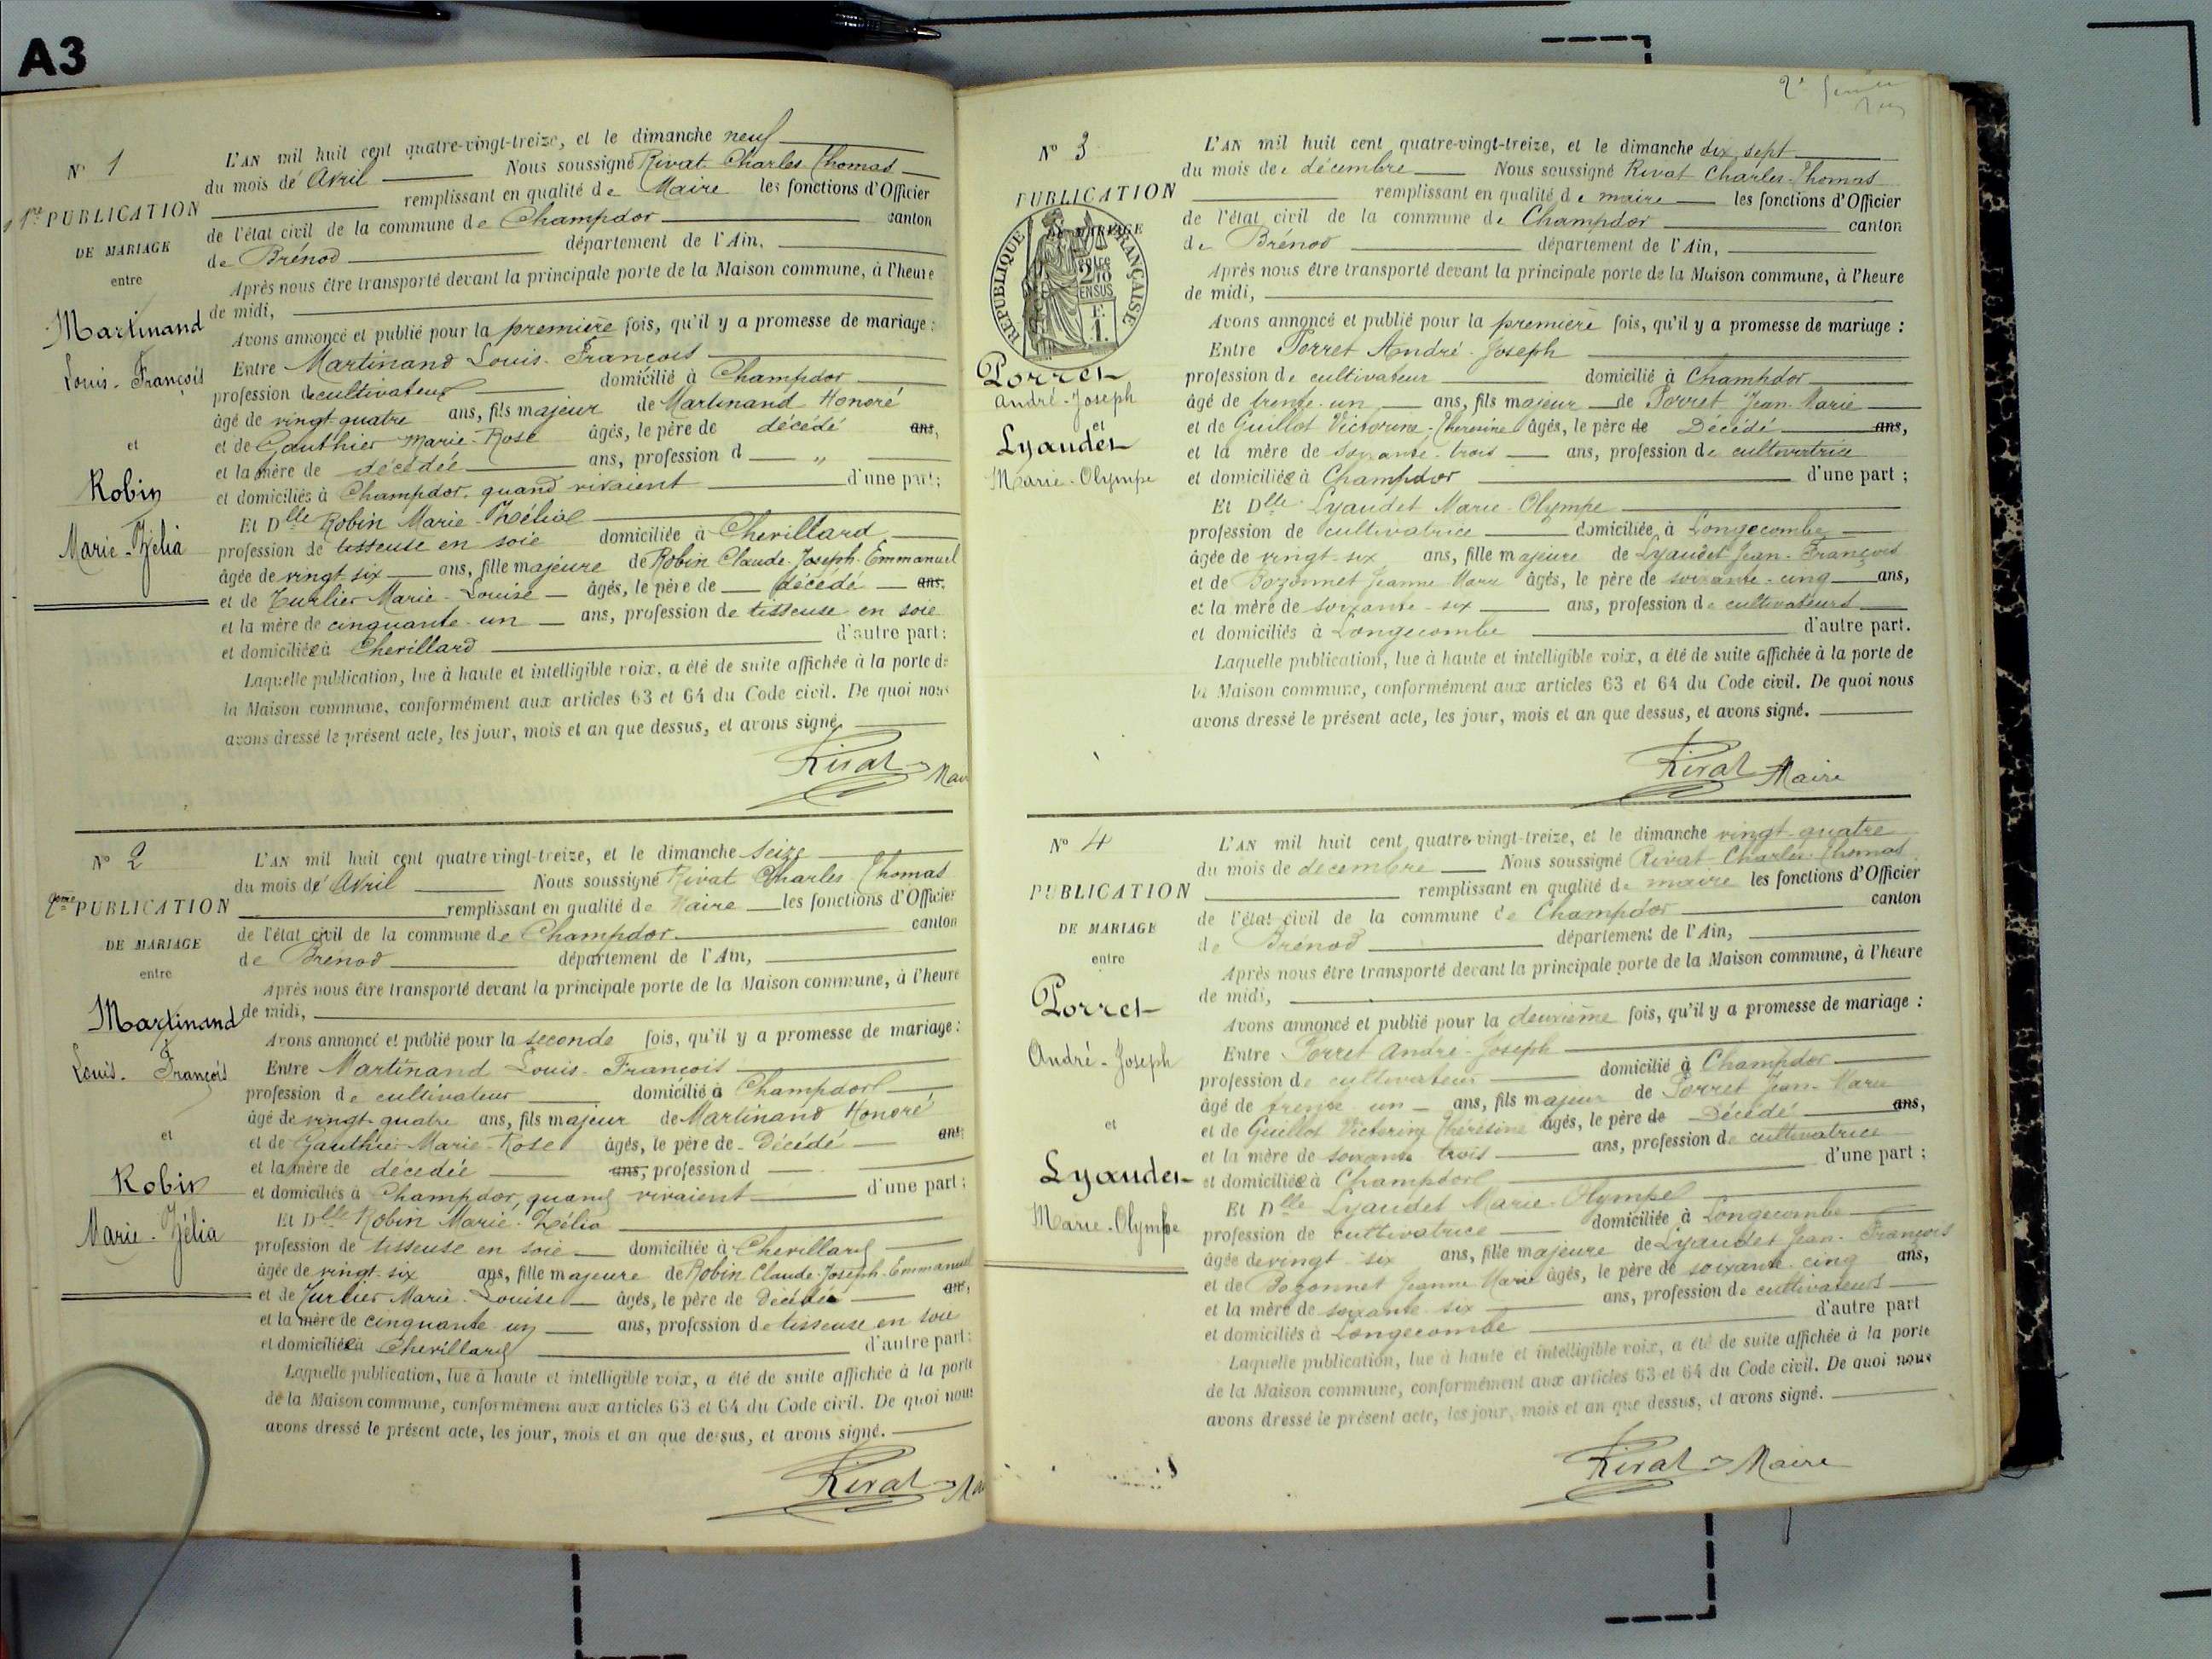 A3
N° 1
1re PUBLICATION
DE MARIAGE
entre
Martinand
Louis-François
et
Robin
Marie-Zélia
L'AN mil huit cent quatre-vingt-treize, et le dimanche neuf
du mois de Avril Nous soussigné Rivat Charles Thomas
remplissant en qualité de Maire les fonctions d'Officier
de l'état civil de la commune de Champdor canton
de Brénod département de l'Ain,
Après nous être transporté devant la principale porte de la Maison commune, à l'heure
de midi,
Avons annoncé et publié pour la première fois, qu'il y a promesse de mariage :
Entre Martinand Louis-François
profession de cultivateur domicilié à Champdor
âgé de vingt quatre ans, fils majeur de Martinand Honoré
et de Gauthier Marie-Rose âgés, le père de décédé ans,
et la mère de décédée ans, profession d "
et domiciliés à Champdor, quand vivaient d'une part;
Et Dlle Robin Marie-Zélia
profession de tisseuse en soie domiciliée à Chevillard
âgée de vingt-six ans, fille majeure de Robin Claude-Joseph-Emmanuel
et de Turlier Marie-Louise âgés, le père de décédé ans,
et la mère de cinquante-un ans, profession de tisseuse en soie
et domiciliée à Chevillard d'autre part;
Laquelle publication, lue à haute et intelligible voix, a été de suite affichée à la porte de
la Maison commune, conformément aux articles 63 et 64 du Code civil. De quoi nous
avons dressé le présent acte, les jour, mois et an que dessus, et avons signé.
Rivat Mair
N° 2
2ème PUBLICATION
DE MARIAGE
entre
Martinand
Louis-François
et
Robin
Marie-Zélia
L'AN mil huit cent quatre vingt-treize, et le dimanche seize
du mois de Avril Nous soussigné Rivat Charles Thomas
remplissant en qualité de Maire les fonctions d'Officier
de l'état civil de la commune de Champdor canton
de Brénod département de l'Ain,
Après nous être transporté devant la principale porte de la Maison commune, à l'heure
de midi,
Avons annoncé et publié pour la seconde fois, qu'il y a promesse de mariage:
Entre Martinand Louis-François
profession de cultivateur domicilié à Champdor
âgé de vingt-quatre ans, fils majeur de Martinand Honoré
et de Gauthier Marie-Rose âgés, le père de Décédé ans
et la mère de décédée ans, profession d
et domiciliés à Champdor, quand vivaient d'une part;
Et Dlle Robin Marie-Zélia
profession de tisseuse en soie domiciliée à Chevillard
âgée de vingt-six ans, fille majeure de Robin Claude-Joseph-Emmanuel
et de Turlier Marie-Louise âgés, le père de Décédé ans,
et la mère de cinquante un ans, profession de tisseuse en soie
et domiciliée à Chevillard d'autre part;
Laquelle publication, lue à haute et intelligible voix, a été de suite affichée à la porte
de la Maison commune, conformément aux articles 63 et 64 du Code civil. De quoi nous
avons dressé le présent acte, les jour, mois et an que dessus, et avons signé.
Rivat Ma
N° 3
PUBLICATION
DE MARIAGE
REPUBLIQUE FRANÇAISE
2/10
EN SUS
Porret
André-Joseph
et
Lyaudet
Marie-Olympe
L'AN mil huit cent quatre-vingt-treize, et le dimanche dix sept
du mois de décembre Nous soussigné Rivat Charles-Thomas
remplissant en qualité de maire les fonctions d'Officier
de l'état civil de la commune de Champdor canton
de Brénod département de l'Ain,
Après nous être transporté devant la principale porte de la Maison commune, à l'heure
de midi,
Avons annoncé et publié pour la première fois, qu'il y a promesse de mariage :
Entre Porret André-Joseph
profession de cultivateur domicilié à Champdor
âgé de trente-un ans, fils majeur de Porret Jean-Marie
et de Guillot Victorine-Thérésine âgés, le père de Décédé ans,
et la mère de soixante-trois ans, profession de cultivatrice
et domiciliée à Champdor d'une part ;
Et Dlle Lyaudet Marie-Olympe
profession de cultivatrice domiciliée à Longecombe
âgée de vingt-six ans, fille majeure de Lyaudet Jean-François
et de Bozonnet Jeanne Marie âgés, le père de soixante-cinq ans,
et la mère de soixante-six ans, profession de cultivateurs
et domiciliés à Longecombe d'autre part.
Laquelle publication, lue à haute et intelligible voix, a été de suite affichée à la porte de
la Maison commune, conformément aux articles 63 et 64 du Code civil. De quoi nous
avons dressé le présent acte, les jour, mois et an que dessus, et avons signé.
Rivat Maire
N° 4
PUBLICATION
DE MARIAGE
entre
Porret
André-Joseph
et
Lyaudet
Marie-Olympe
L'AN mil huit cent quatre-vingt-treize, et le dimanche vingt-quatre
du mois de decembre Nous soussigné Rivat Charles-Thomas
remplissant en qualité de maire les fonctions d'Officier
de l'état civil de la commune de Champdor canton
de Brénod département de l'Ain,
Après nous être transporté devant la principale porte de la Maison commune, à l'heure
de midi,
Avons annoncé et publié pour la deuxième fois, qu'il y a promesse de mariage :
Entre Porret André-Joseph
profession de cultivateur domicilié à Champdor
âgé de trente un ans, fils majeur de Porret Jean-Marie
et de Guillot Victorine Thérésine âgés, le père de Décédé ans,
et la mère de soixante trois ans, profession de cultivatrice
et domiciliée à Champdor d'une part ;
Et Dlle Lyaudet Marie-Olympe
profession de cultivatrice domiciliée à Longecombe
âgée de vingt-six ans, fille majeure de Lyaudet Jean-François
et de Bozonnet Jeanne Marie âgés, le père de soixante-cinq ans,
et la mère de soixante-six ans, profession de cultivateurs
et domiciliés à Longecombe d'autre part
Laquelle publication, lue à haute et intelligible voix, a été de suite affichée à la porte
de la Maison commune, conformément aux articles 63 et 64 du Code civil. De quoi nous
avons dressé le présent acte, les jour, mois et an que dessus, et avons signé.
Rivat Maire